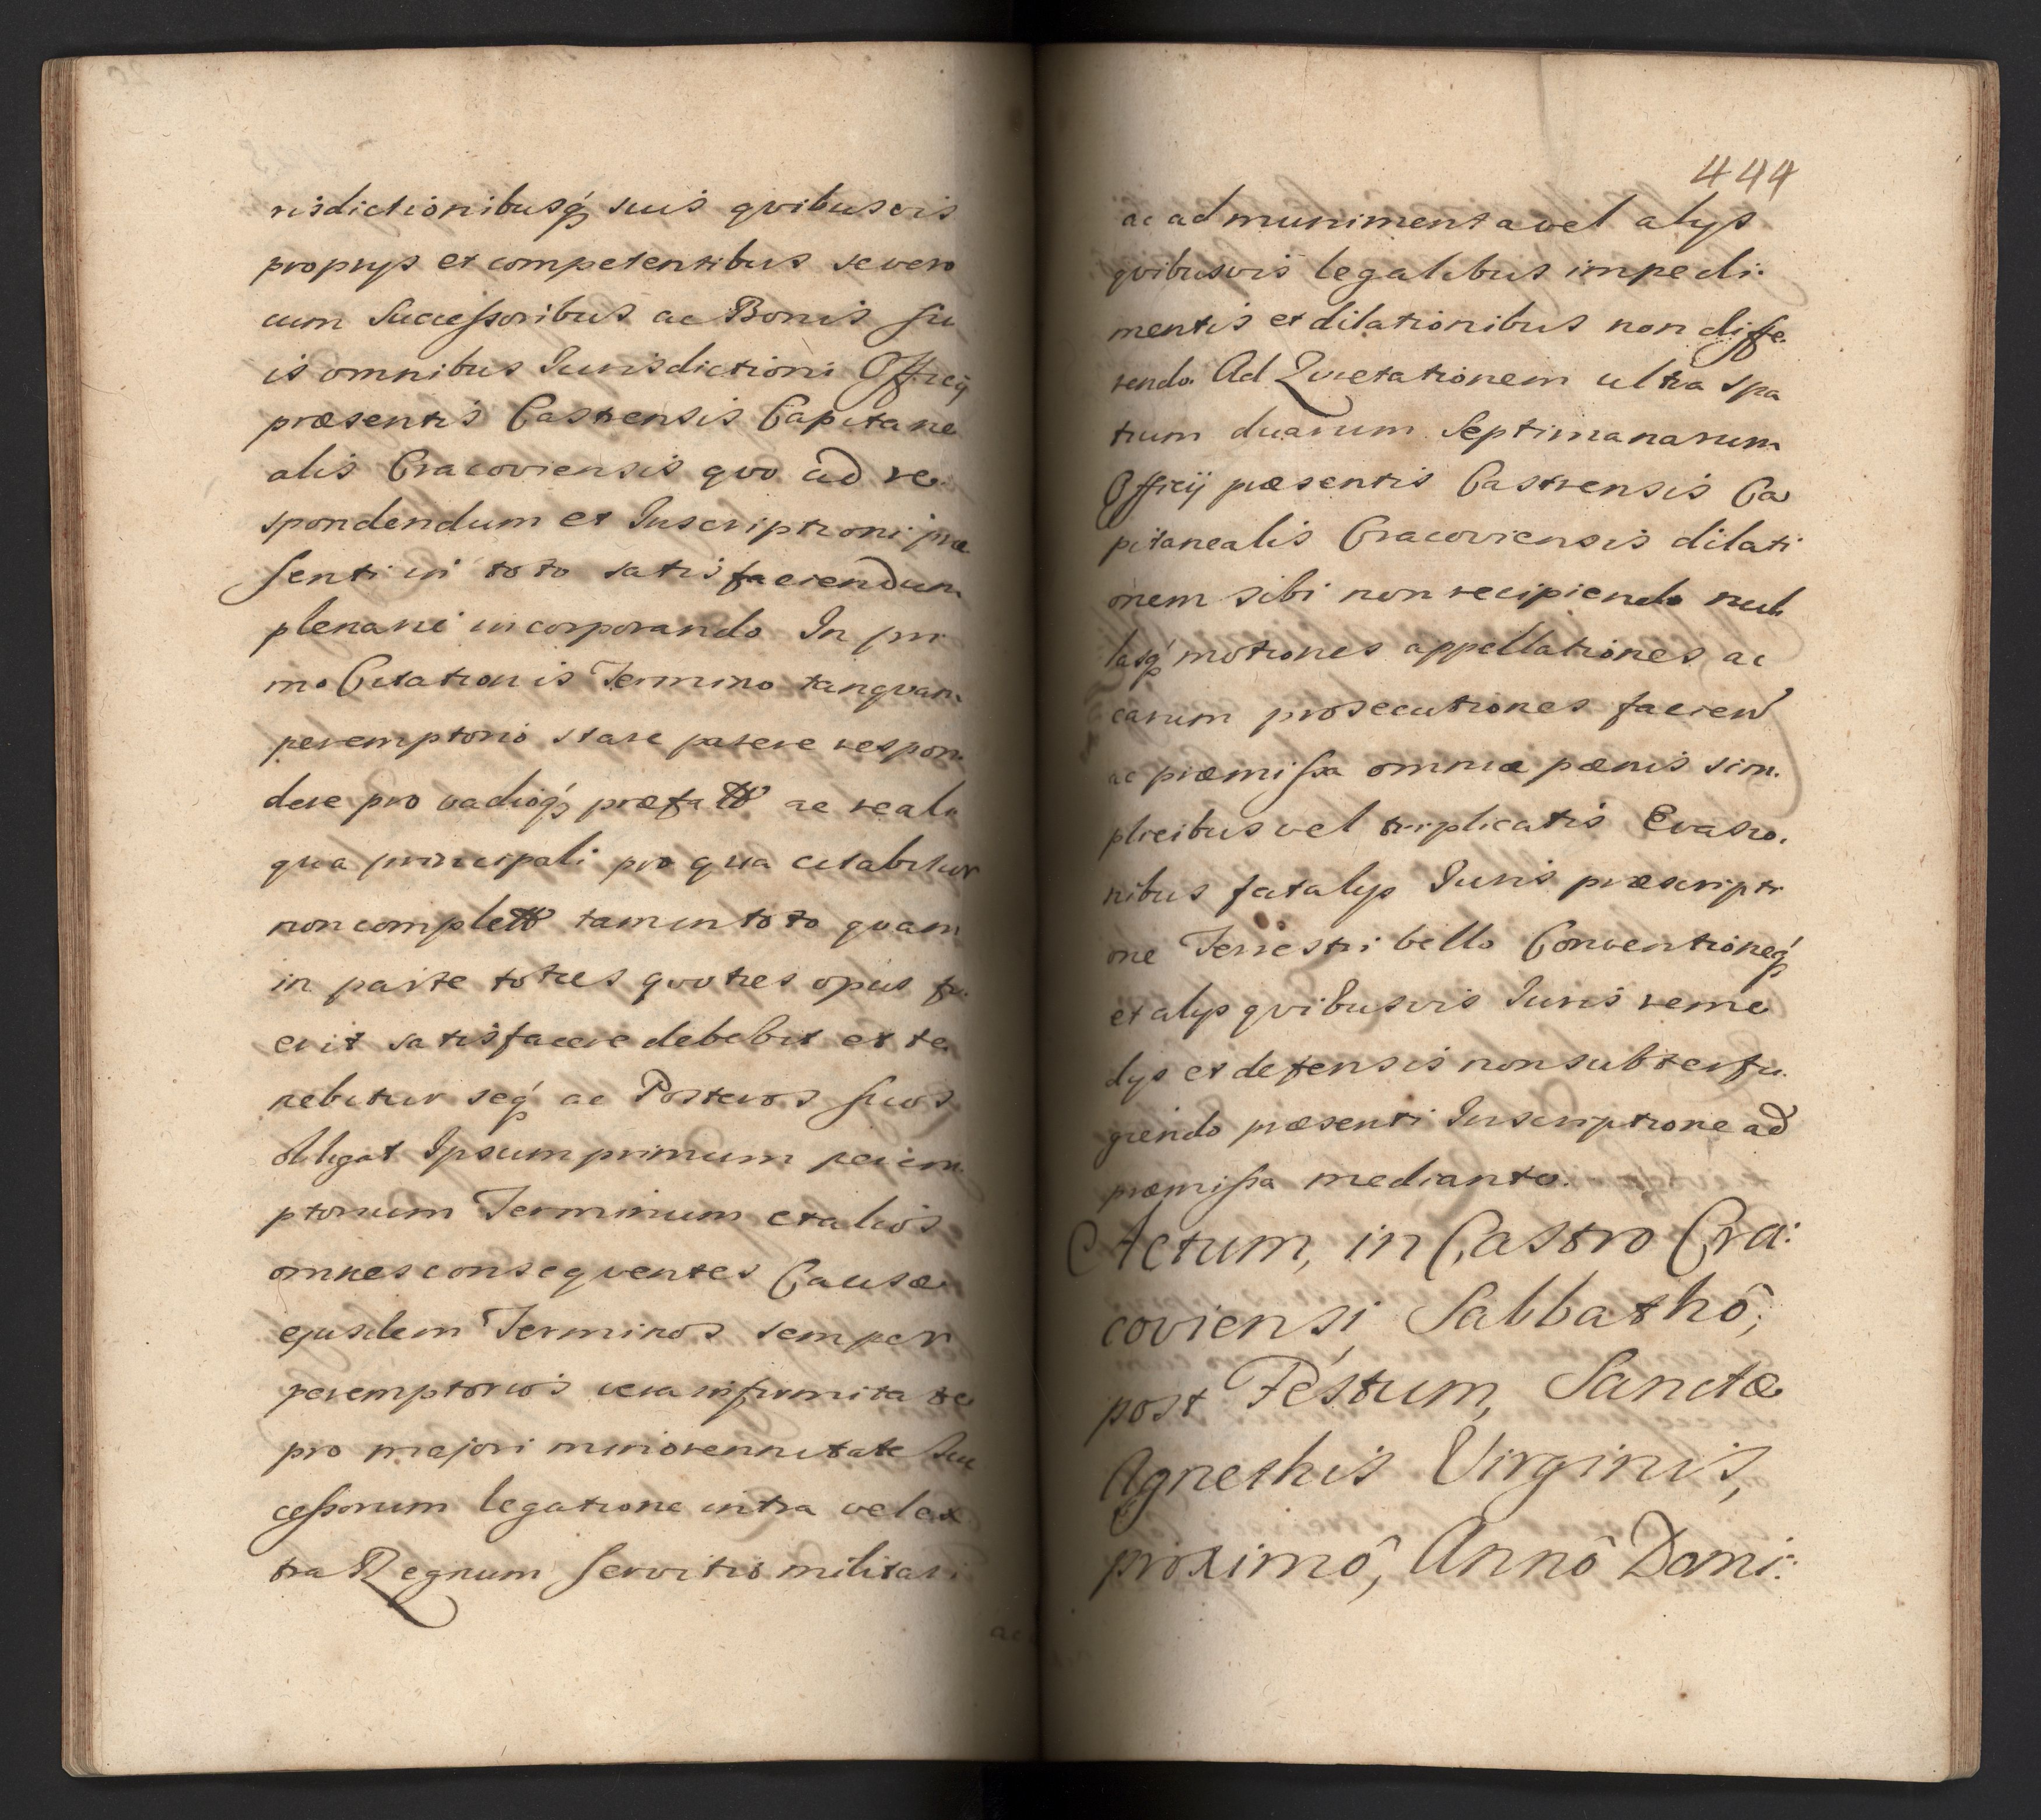 risdictionibusq́ suis qvibusvis
proprys et competentibus se vero
cum Successoribus ac Bonis su
is omnibus Iurisdictioni Officij
præsentis Castrensis Capitane
alis Cracoviensis qvo ad re
spondendum et Inscriptioni præ
senti in toto satisfaciendum
plenarie incorporando In pri
mo Citationis Termino tanqvam
peremptorio stare parere respon
dere pro vadioq́ præfatto ac re ali
qua principali pro qua citabitur
non completto tam in toto quam
in parte toties qvoties opus fu
erit satisfacere debebit et te
nebitur seq́ ac Posteros suos
obligat Ipsum primum perem
ptorium Terminum et alios
omnes conseqventes Causæ
ejusdem Terminos semper
peremptorios vera infirmitate
pro majori minorennitate Suc
cessorum legatione intra vel ex
tra Regnum servitio militari
444
ac ad munimenta vel alys
qvibusvis legalibus impedi
mentis et dilationibus non diffe
rendo Ad Qvietationem ultra spa
tium duarum Septimanarum
Officij præsentis Castrensis Ca
pitanealis Cracoviensis dilati
onem sibi non recipiendo nul
lasq́ motiones appellationes ac
earum prosecutiones faciend
ac præmissa omnia pænis sim
plicibus vel triplicatis Evasio
nibus fatalys Iuris præscripti
one Terrestri bello Conventioneq́
et alys qvibusvis Iuris reme
dys et defensis non subterfu
giendo præsenti Inscriptione ad
præmissa mediante.
Actum, in Castro Cra:
coviensi Sabbathô,
post Festum, Sanctæ
Agnethis Virginis,
proximô, Annô Domi: